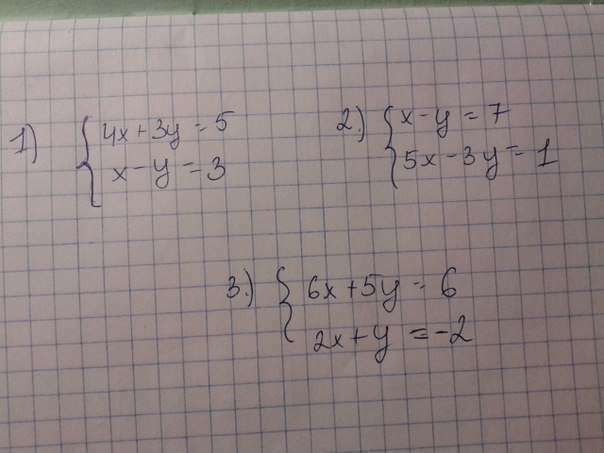 1) { 4x+3y=5
x-y=3
2.) { x-y=7
5x-3y=1
3.) { 6x+5y=6
2x+y=-2